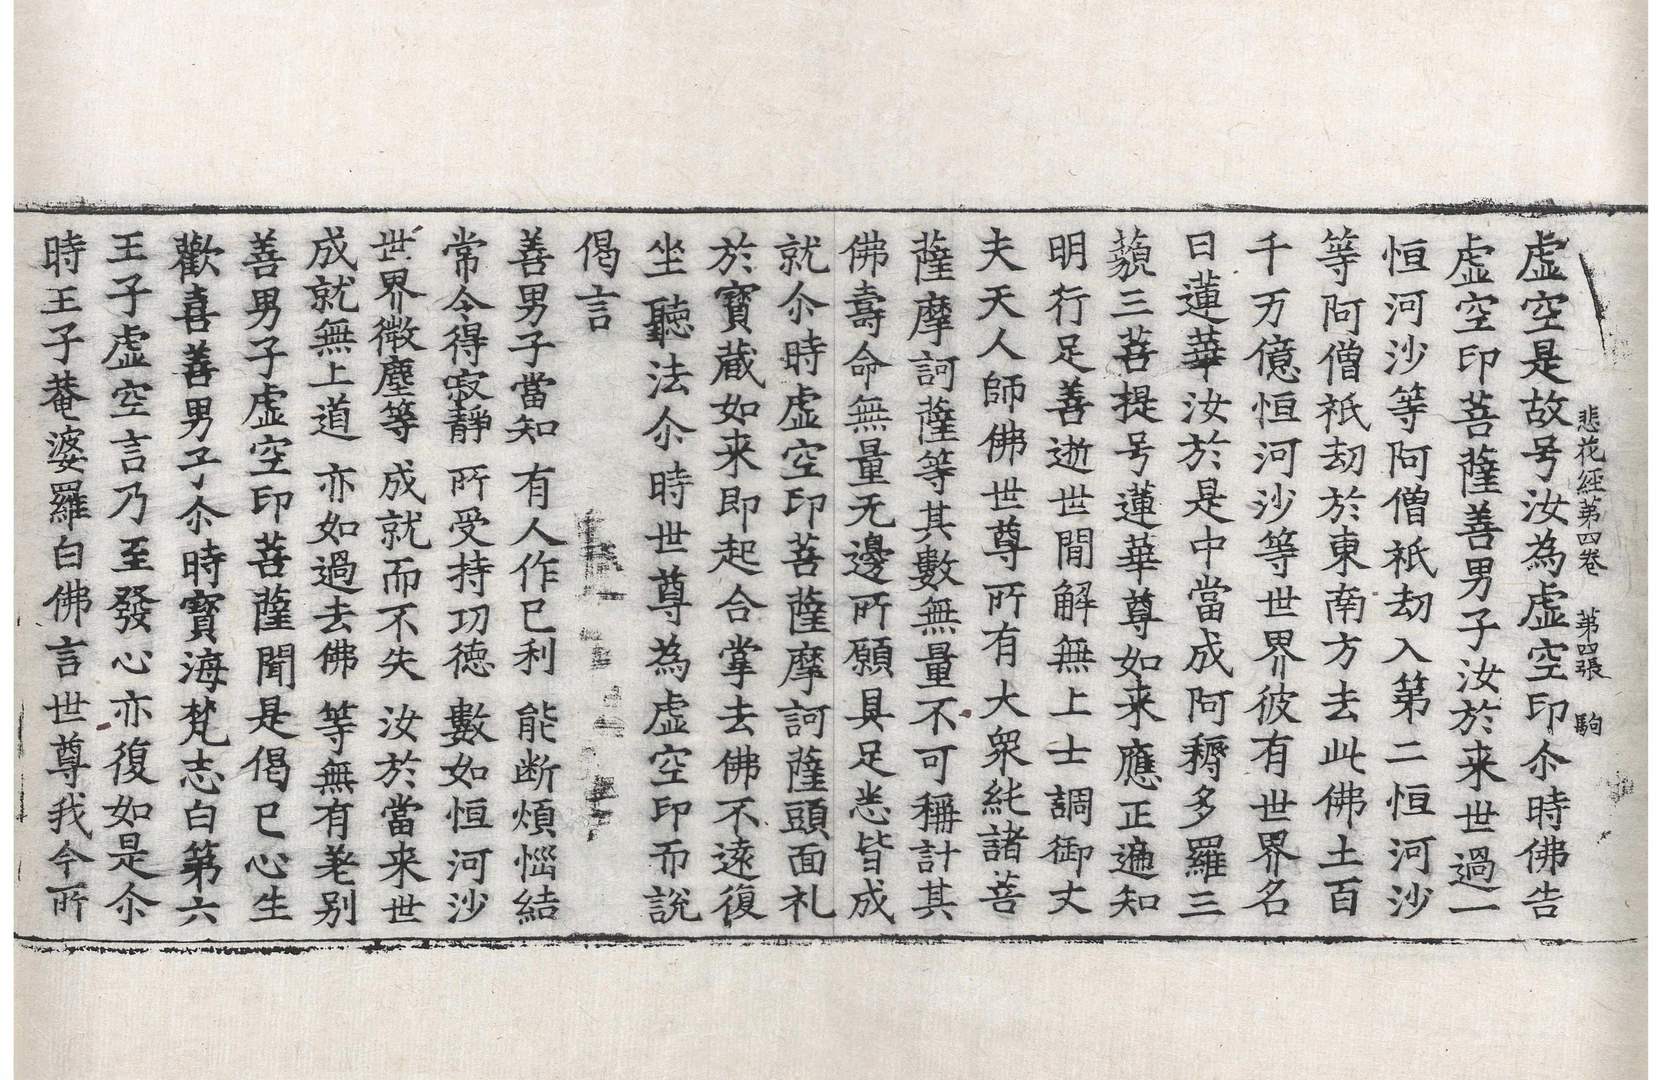 悲花經第四卷　第四張　駒
虛空是故号汝為虛空印尒時佛告
虛空印菩薩善男子汝於来世過一
恒河沙等阿僧祇劫入第二恒河沙
等阿僧祇劫於東南方去此佛土百
千万億恒河沙等世界彼有世界名
曰蓮華汝於是中當成阿耨多羅三
藐三菩提号蓮華尊如来應正遍知
明行足善逝世閒解無上士調御丈
夫天人師佛世尊所有大衆純諸菩
薩摩訶薩等其數無量不可稱計其
佛壽命無量无邊所願具足悉皆成
就尒時虛空印菩薩摩訶薩頭面礼
於寶藏如来即起合掌去佛不遠復
坐聽法尒時世尊為虛空印而說
偈言
善男子當知　有人作已利　能断煩惱結
常令得寂靜　所受持功德　數如恒河沙
世界微塵等　成就而不失　汝於當来世
成就無上道　亦如過去佛　等無有差别
善男子虛空印菩薩聞是偈已心生
歡喜善男子尒時寶海梵志白第六
王子虛空言乃至發心亦復如是尒
時王子菴婆羅白佛言世尊我今所